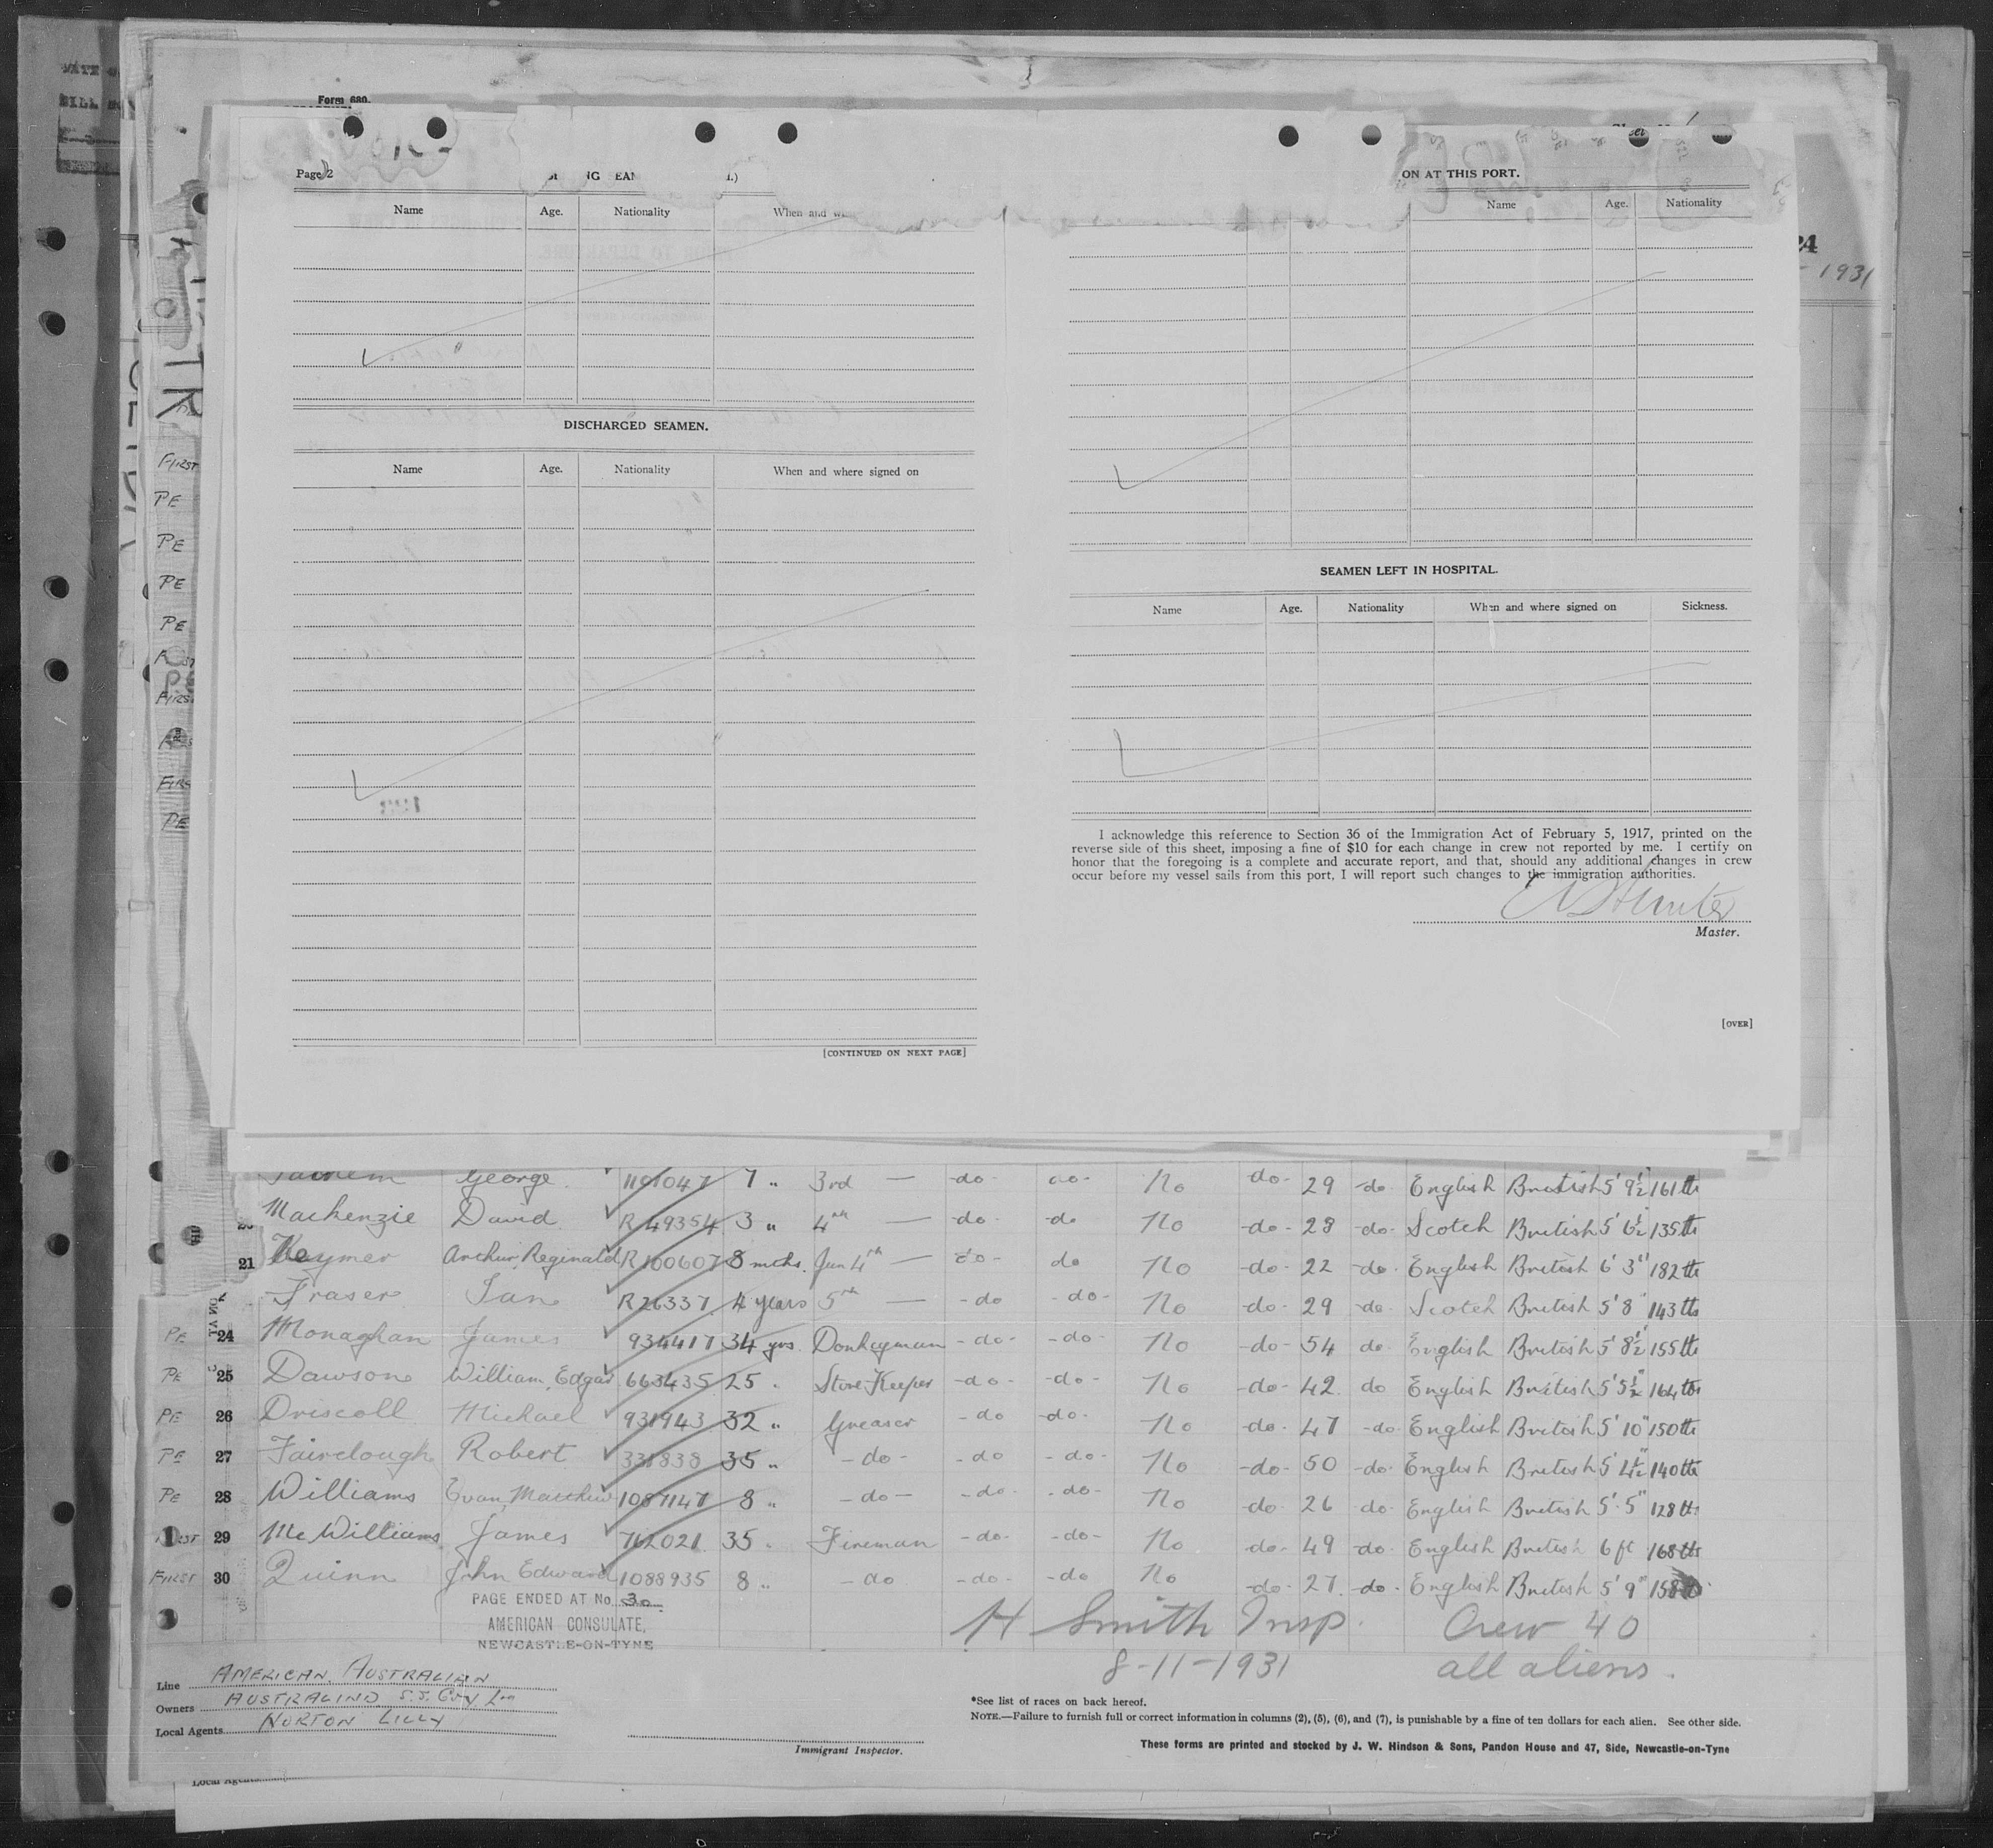 Form 680.
Page 2
ON AT THIS PORT.
Name Age. Nationality When and
Name Age. Nationality
24
1931
DISCHARGED SEAMEN.
Name Age. Nationality When and where signed on
SEAMEN LEFT IN HOSPITAL.
Name Age. Nationality When and where signed on Sickness.
I acknowledge this reference to Section 36 of the Immigration Act of February 5, 1917, printed on the
reverse side of this sheet, imposing a fine of $10 for each change in crew not reported by me. I certify on
honor that the foregoing is a complete and accurate report, and that, should any additional changes in crew
occur before my vessel sails from this port, I will report such changes to the immigration authorities.
Master.
[OVER]
[CONTINUED ON NEXT PAGE]
FIRST
PE
PE
PE
PE
FIRS
FIRS
PE
George 1101047 7 " 3rd — -do- -do- No -do- 29 -do- English British 5' 9½ 161 lbs
Mackenzie David R 49354 3 " 4th — -do- -do No -do- 28 -do- Scotch British 5' 6½ 135 lbs
21 Keymer Arthur, Reginald R100607 8 mths. Jun 4th — -do- do No -do- 22 -do- English British 6' 3" 182 lbs
Fraser Ian R26337 4 years 5th — -do -do- No -do- 29 -do- Scotch British 5' 8" 143 lbs
PE 24 Monaghan James 934417 34 yrs. Donkeyman -do- -do- No -do- 54 do English British 5' 8½ 155 lbs
PE 25 Dawson William, Edgar 663435 25 " Store Keeper -do- -do- No -do- 42 do English British 5' 5½" 164 lbs
PE 26 Driscoll Michael 931943 32 " Greaser -do -do- No -do- 47 -do- English British 5' 10" 150 lbs
PE 27 Fairclough Robert 331838 35 " -do- -do -do- No -do- 50 -do- English British 5' 4½" 140 lbs
PE 28 Williams Evan, Matthew 1087147 8 " -do- -do- -do- No -do- 26 -do- English British 5' 5" 128 lbs
29 McWilliams James 762021 35 " Fireman -do- -do- No -do- 49 -do- English British 6 ft 168 lbs
FIRST 30 Quinn John Edward 1088935 8 " -do -do- -do No -do- 27 -do- English British 5' 9" 158
PAGE ENDED AT No. 30
AMERICAN CONSULATE,
NEWCASTLE-ON-TYNE
H Smith Insp. Crew 40
8-11-1931 all aliens.
Line AMERICAN, AUSTRALIAN
Owners AUSTRALIND S.S. Coy Ltd
Local Agents NORTON LILLY
Immigrant Inspector.
*See list of races on back hereof.
NOTE.—Failure to furnish full or correct information in columns (2), (5), (6), and (7), is punishable by a fine of ten dollars for each alien. See other side.
These forms are printed and stocked by J. W. Hindson & Sons, Pandon House and 47, Side, Newcastle-on-Tyne
Local Agents